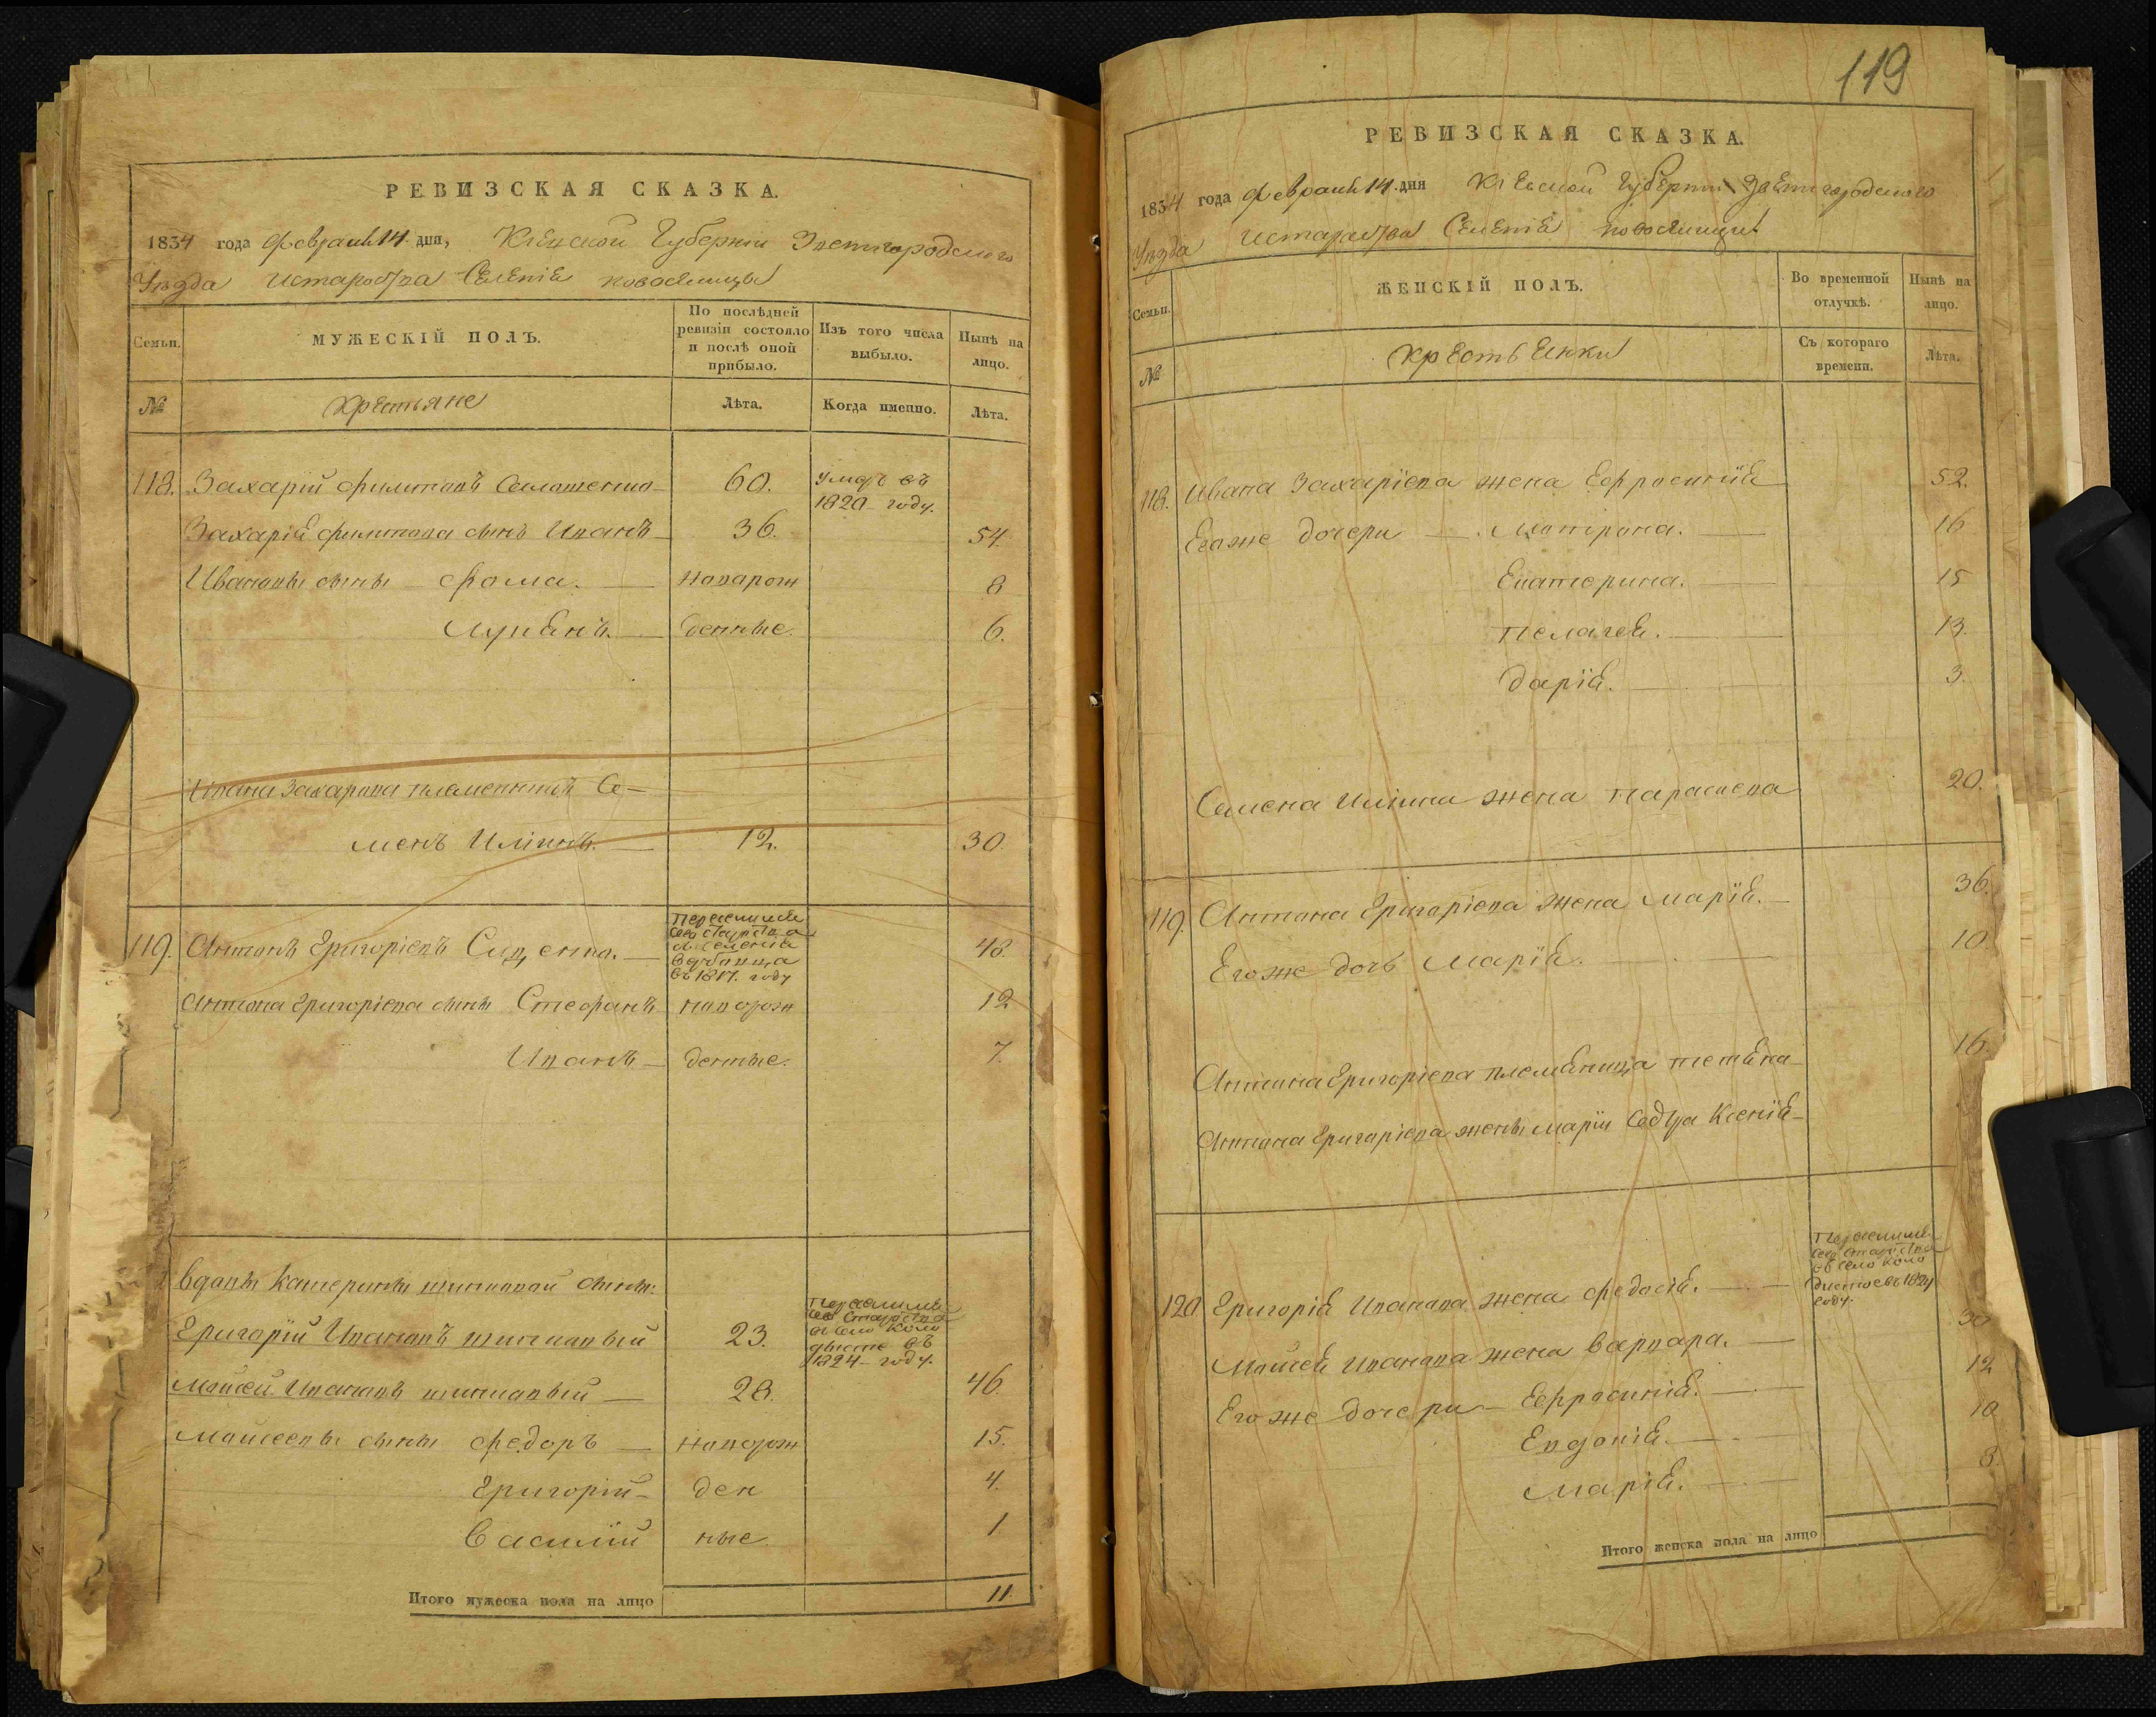 РЕВИЗСКАЯ СКАЗКА.
1834 года февраля 14 дня, Кіевской Губерніи Звенигородского
Уѣзда Староства Селенія Новоселицы
Семьи.
МУЖЕСКІЙ ПОЛЪ.
По послѣдней
ревизіи состояло
и послѣ оной
прибыло.
Изъ того числа
выбыло.
Нынѣ на
лицо.
№
Крестьяне
Лѣта.
Когда именно.
Лѣта.
118. Захарій Филиповъ 60. умеръ въ
1820 году.
Захарія Филипова сынъ Иванъ 36. 54.
Ивановы сыны Фома. новорож 8
Лукянъ. денные. 6.
Ивана Захарова племенникъ Се-
менъ Илiинъ. 12. 30.
119. Антонъ Григоріевъ
Переселился
сего староства
въ 1817 году
48.
Антона Григоріева сыны Стефанъ новорож 12
Иванъ денные. 7.
Вдовы Катерины сыны:
Григорій Ивановъ 23.
Переселился
сего староства
въ село
въ
1824 году.
Мойсей Ивановъ 28. 46.
Мойсеевы сыны Федоръ новорож 15.
Григорій ден 4.
Василій ные 1
Итого мужеска пола на лицо 11.
119
РЕВИЗСКАЯ СКАЗКА.
1834 года февраля 14 дня Кіевской Губерніи Звенигородского
Уѣзда Староства Селенія Новоселицы
Семьи.
ЖЕНСКІЙ ПОЛЪ.
Во временной
отлучкѣ.
Нынѣ на
лицо.
№
Крестьянки
Съ котораго
времени.
Лѣта.
118. Ивана Захаріева жена Ефросинія 52.
Егоже дочери Мотрона. 16
Екатерина. 15
Пелагея. 13.
Дарія. 3.
Семена Илiина жена Параскева 20.
119. Антона Григоріева жена Марія. 36.
Егоже дочь Марія. 10.
Антона Григоріева племяница Тетяна 16.
Антона Григоріева жены Маріи сестра Ксенія
120 Григорія Иванова жена Федосія.
Переселился
сего староства
въ село
въ 1824
году.
Мойсея Иванова жена Варвара. 30
Егоже дочери Ефросинія. 12
Евдокія. 10
Марія. 8.
Итого женска пола на лицо